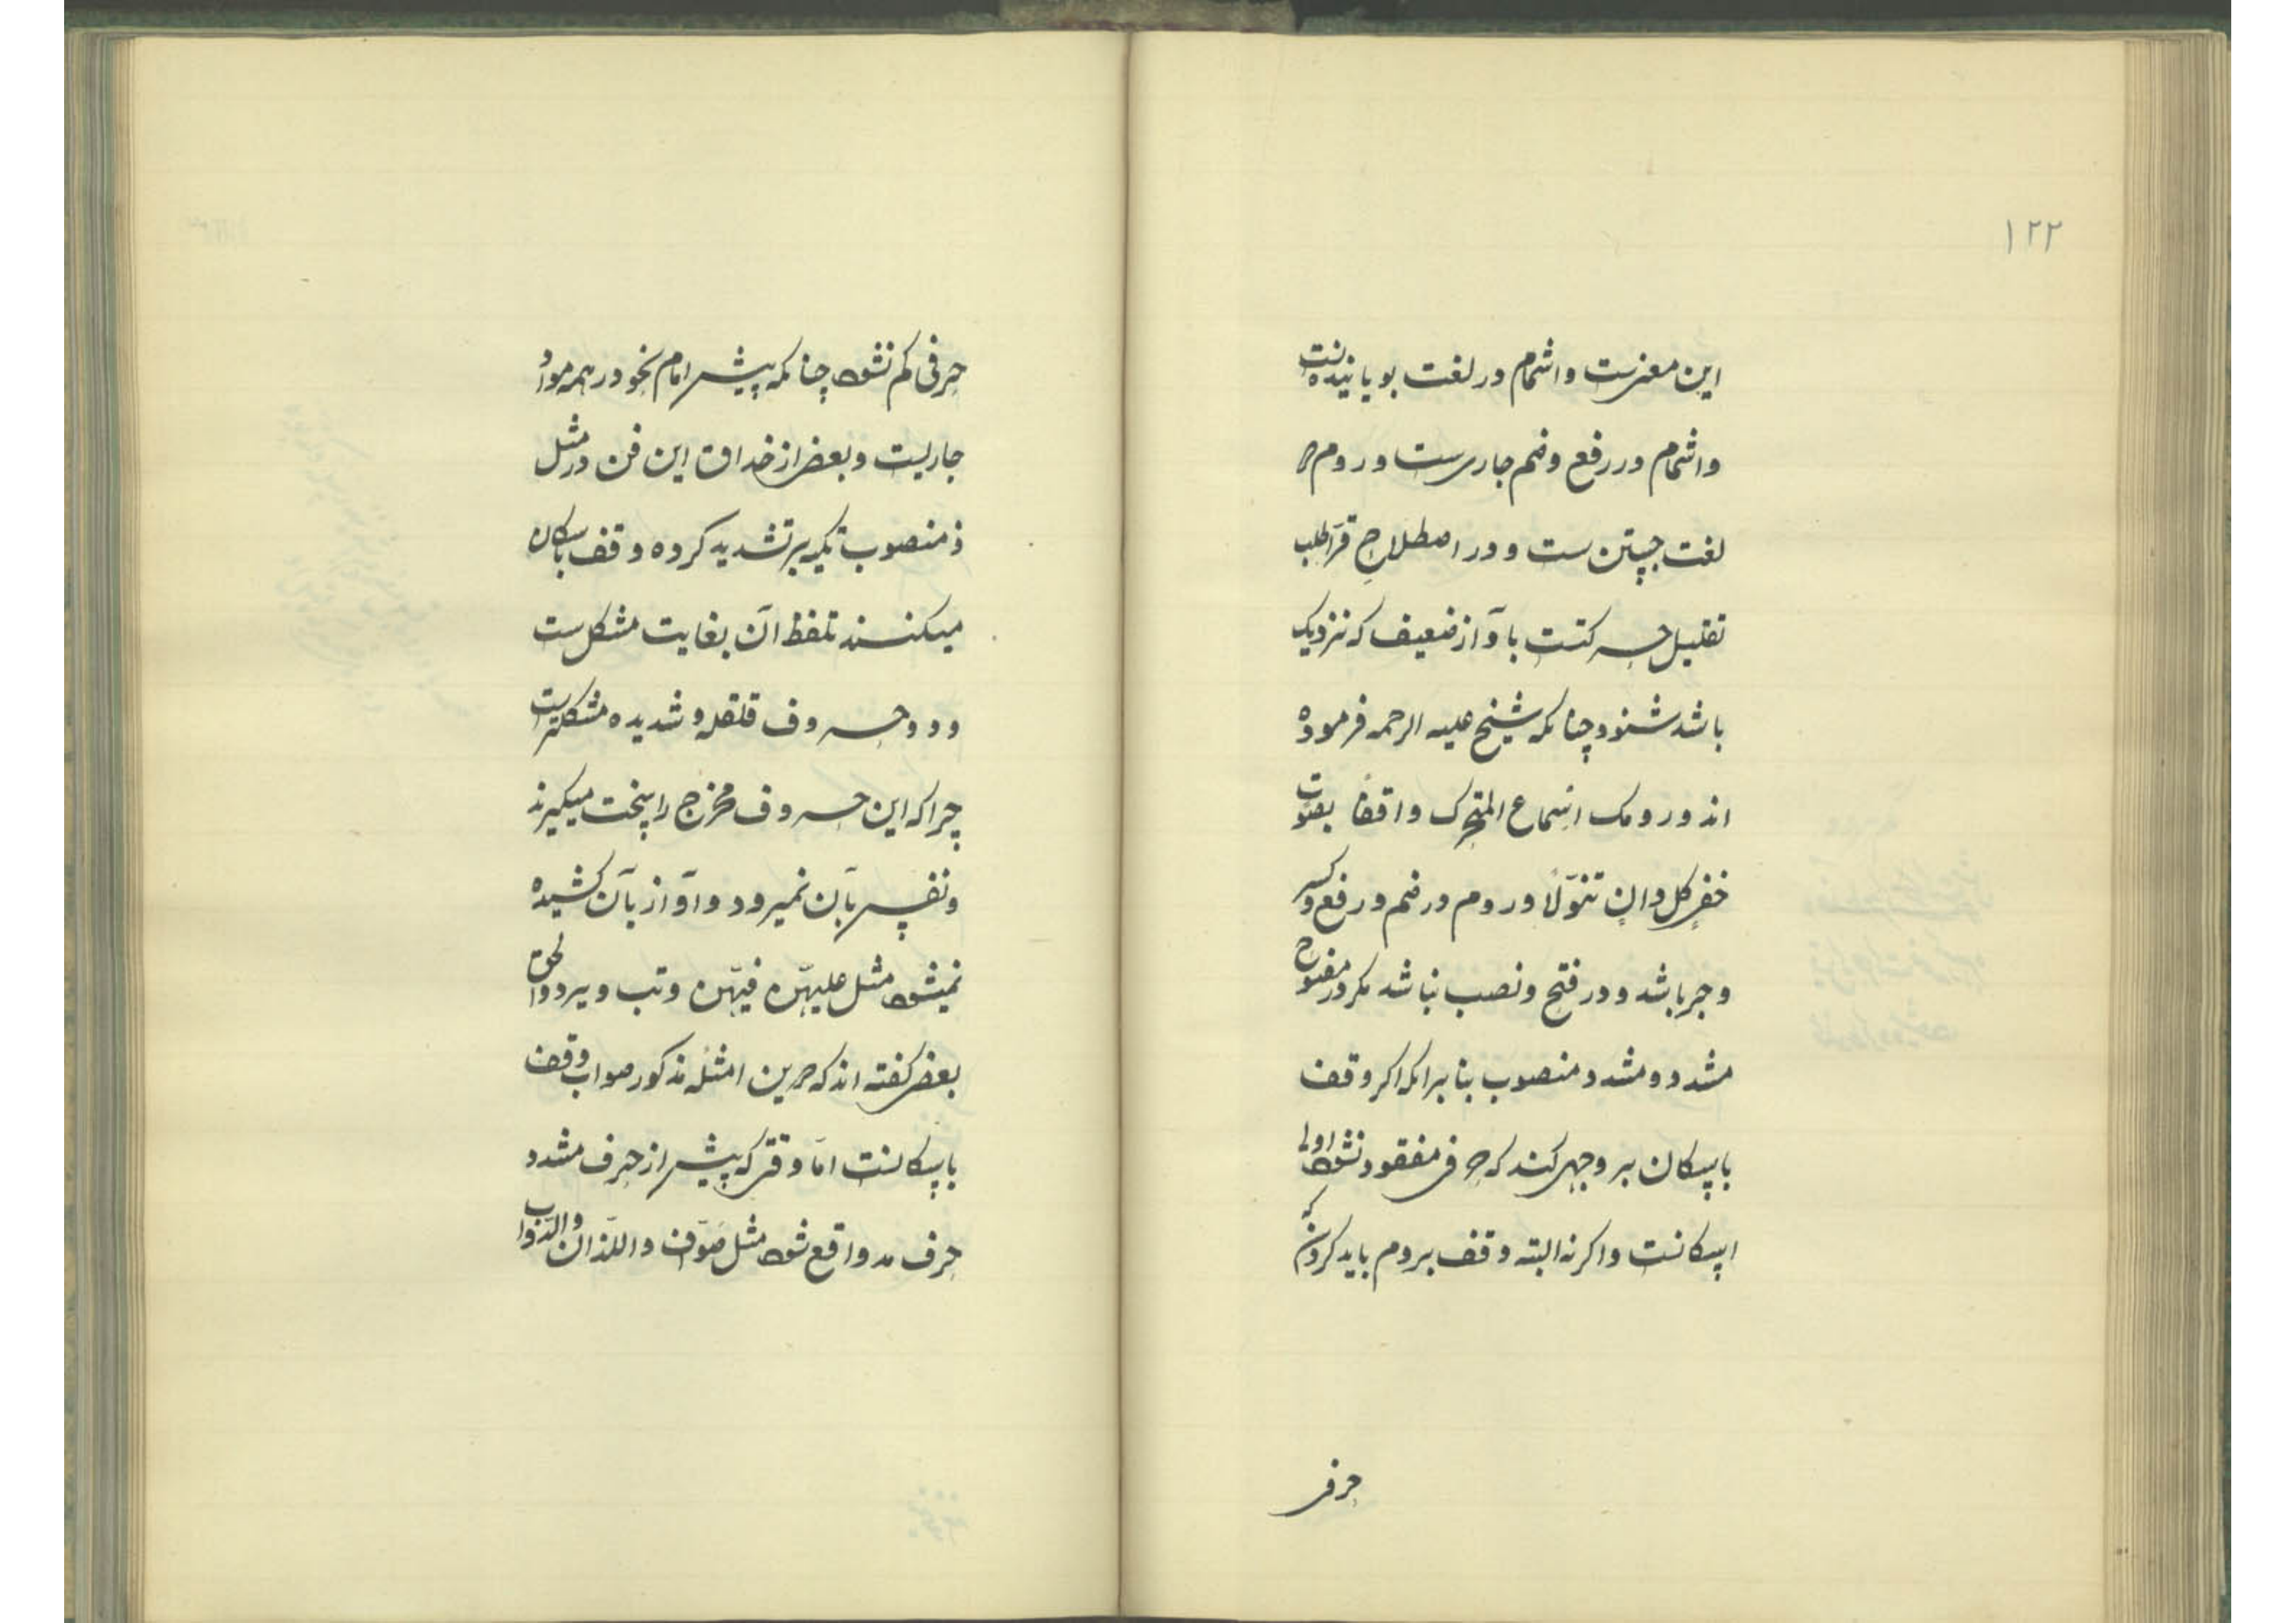 ۱۲۲
این معنیست و اشمام در لغت بویانیدنست
و اشمام در رفع و ضم جاری ست و روم در
لغت جستن ست و در اصطلاح قرا طلب
تقلیل حرکتست بآواز ضعیف که نزدیک
باشد شنود چنانکه شیخ علیه الرحمه فرموده
اند و رومک اسماع المتحرک واقفا بصوت
خفی کل دان تنوّلا و روم در ضم و رفع و کسر
و جر باشد و در فتح و نصب نباشد مکر در مفتوح
مشدد و مشدد منصوب بنابرانکه اکر وقف
باسکان بر وجهی کند که حرفی مفقود نشود اولی
اسکانست و اکر نه البته وقف بروم باید کرد که
حرفی
حرفی کم نشود چنانکه پیش امام نحو در همه مواد
جاریست و بعضی از حذاق این فن در مثل
منصوب تکیه بر تشدید کرده وقف باسکان
میکنند تلفظ آن بغایت مشکل ست
و در حروف قلقله و شدیده مشکلترست
چرا که این حروف مخرج را سخت میکیرند
و نفس بآن نمیرود و آواز بآن کشیده
نمیشود مثل علیهنّ فیهنّ و تب و یردوا لحق
بعضی کفته اند که درین امثله مذکور صواب وقف
باسکانست امّا وقتی که پیش از حرف مشدد
حرف مد واقع شود مثل صوّاف و اللذان و الدّواب